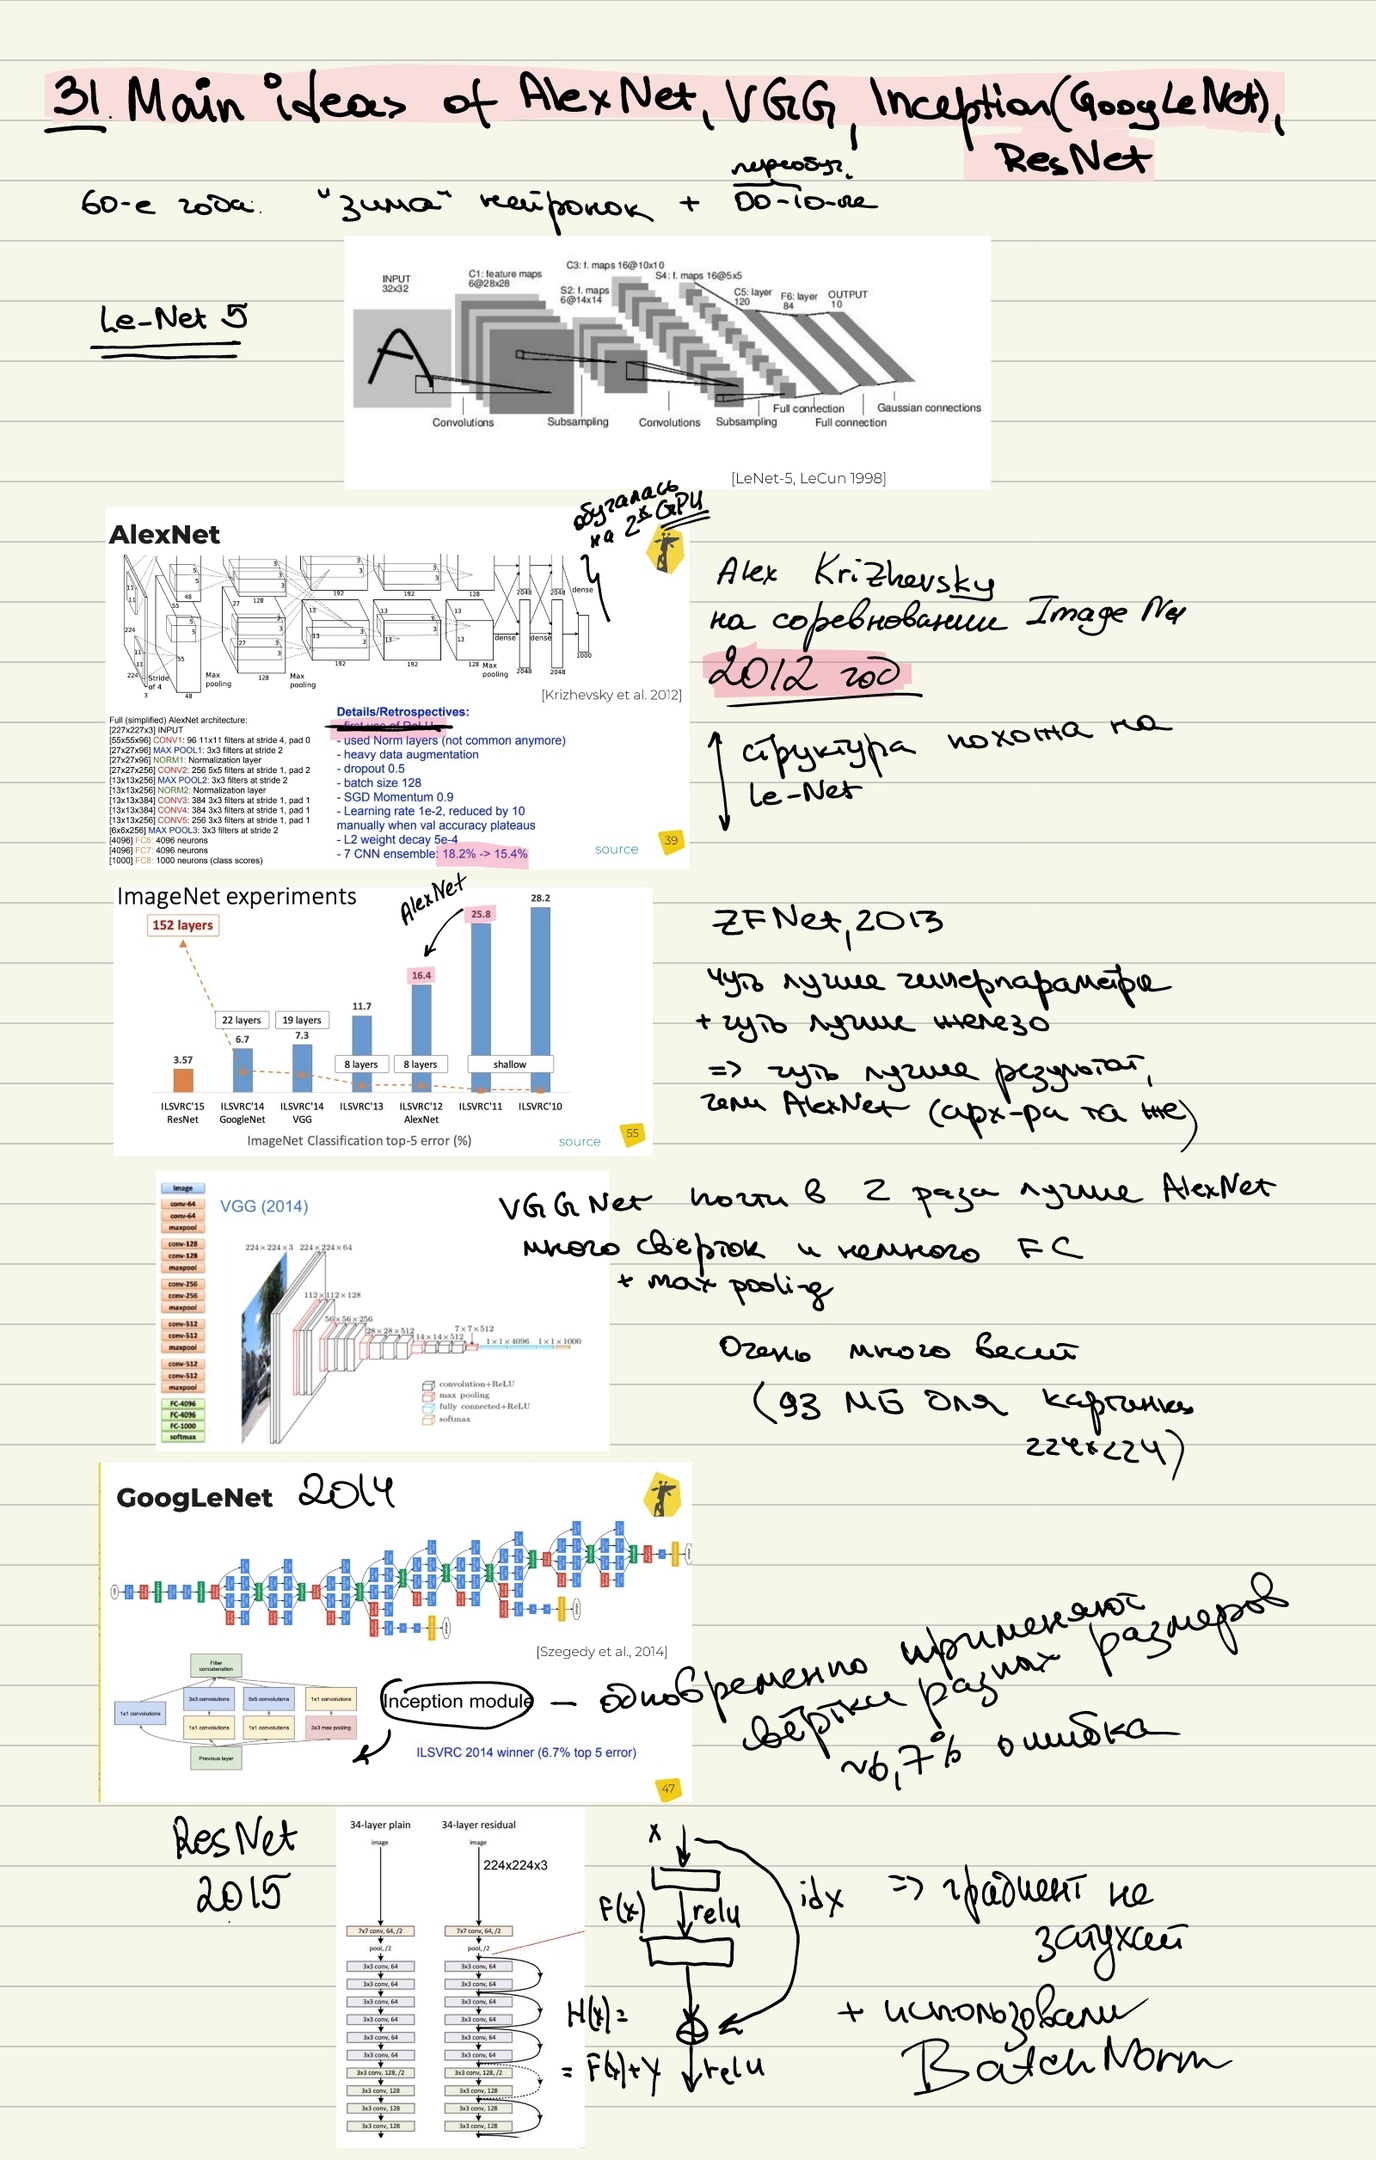 31. Main ideas of AlexNet, VGG, Inception (GoogLeNet),
ResNet
60-е года: "зима" нейронок +
Le-Net 5
INPUT
32x32
C1: feature maps
6@28x28
S2: f. maps
6@14x14
C3: f. maps 16@10x10
S4: f. maps 16@5x5
C5: layer
120
F6: layer
84
OUTPUT
10
Convolutions
Subsampling
Convolutions
Subsampling
Full connection
Full connection
Gaussian connections
[LeNet-5, LeCun 1998]
обучалась
на 2x GPU
AlexNet
[Krizhevsky et al. 2012]
Alex Krizhevsky
на соревновании Image Net
2012 год
структура похожа на
Le-Net
Full (simplified) AlexNet architecture:
[227x227x3] INPUT
[55x55x96] CONV1: 96 11x11 filters at stride 4, pad 0
[27x27x96] MAX POOL1: 3x3 filters at stride 2
[27x27x96] NORM1: Normalization layer
[27x27x256] CONV2: 256 5x5 filters at stride 1, pad 2
[13x13x256] MAX POOL2: 3x3 filters at stride 2
[13x13x256] NORM2: Normalization layer
[13x13x384] CONV3: 384 3x3 filters at stride 1, pad 1
[13x13x384] CONV4: 384 3x3 filters at stride 1, pad 1
[13x13x256] CONV5: 256 3x3 filters at stride 1, pad 1
[6x6x256] MAX POOL3: 3x3 filters at stride 2
[4096] FC6: 4096 neurons
[4096] FC7: 4096 neurons
[1000] FC8: 1000 neurons (class scores)
Details/Retrospectives:
- first use of ReLU
- used Norm layers (not common anymore)
- heavy data augmentation
- dropout 0.5
- batch size 128
- SGD Momentum 0.9
- Learning rate 1e-2, reduced by 10
manually when val accuracy plateaus
- L2 weight decay 5e-4
- 7 CNN ensemble: 18.2% -> 15.4%
source
39
ImageNet experiments
AlexNet
152 layers
22 layers
19 layers
8 layers
8 layers
shallow
3.57
6.7
7.3
11.7
16.4
25.8
28.2
ILSVRC'15
ResNet
ILSVRC'14
GoogleNet
ILSVRC'14
VGG
ILSVRC'13
ILSVRC'12
AlexNet
ILSVRC'11
ILSVRC'10
ImageNet Classification top-5 error (%)
source
55
ZFNet, 2013
чуть лучше гиперпараметры
+ чуть лучше железо
=> чуть лучше результат,
чем AlexNet (арх-ра та же)
Image
conv-64
conv-64
maxpool
conv-128
conv-128
maxpool
conv-256
conv-256
maxpool
conv-512
conv-512
maxpool
conv-512
conv-512
maxpool
FC-4096
FC-4096
FC-1000
softmax
VGG (2014)
224×224×3 224×224×64
112×112×128
56×56×256
28×28×512
14×14×512
7×7×512
1×1×4096 1×1×1000
convolution+ReLU
max pooling
fully connected+ReLU
softmax
VGG Net почти в 2 раза лучше AlexNet
много свёрток и немного FC
+ max pooling
Очень много весит
(93 МБ для картинки
224x224)
GoogLeNet 2014
[Szegedy et al., 2014]
Filter
concatenation
1x1 convolutions
3x3 convolutions
5x5 convolutions
1x1 convolutions
1x1 convolutions
1x1 convolutions
3x3 max pooling
Previous layer
Inception module — одновременно применяют
свёртки разных размеров
~6,7% ошибка
ILSVRC 2014 winner (6.7% top 5 error)
47
ResNet
2015
34-layer plain
34-layer residual
image
image
224x224x3
7x7 conv, 64, /2
pool, /2
3x3 conv, 64
3x3 conv, 64
3x3 conv, 64
3x3 conv, 64
3x3 conv, 64
3x3 conv, 64
3x3 conv, 128, /2
3x3 conv, 128
3x3 conv, 128
3x3 conv, 128
7x7 conv, 64, /2
pool, /2
3x3 conv, 64
3x3 conv, 64
3x3 conv, 64
3x3 conv, 64
3x3 conv, 64
3x3 conv, 64
3x3 conv, 128, /2
3x3 conv, 128
3x3 conv, 128
3x3 conv, 128
x
F(x)
relu
idx
H(x) =
= F(x) + x
relu
=> градиент не
затухает
+ использовали
BatchNorm